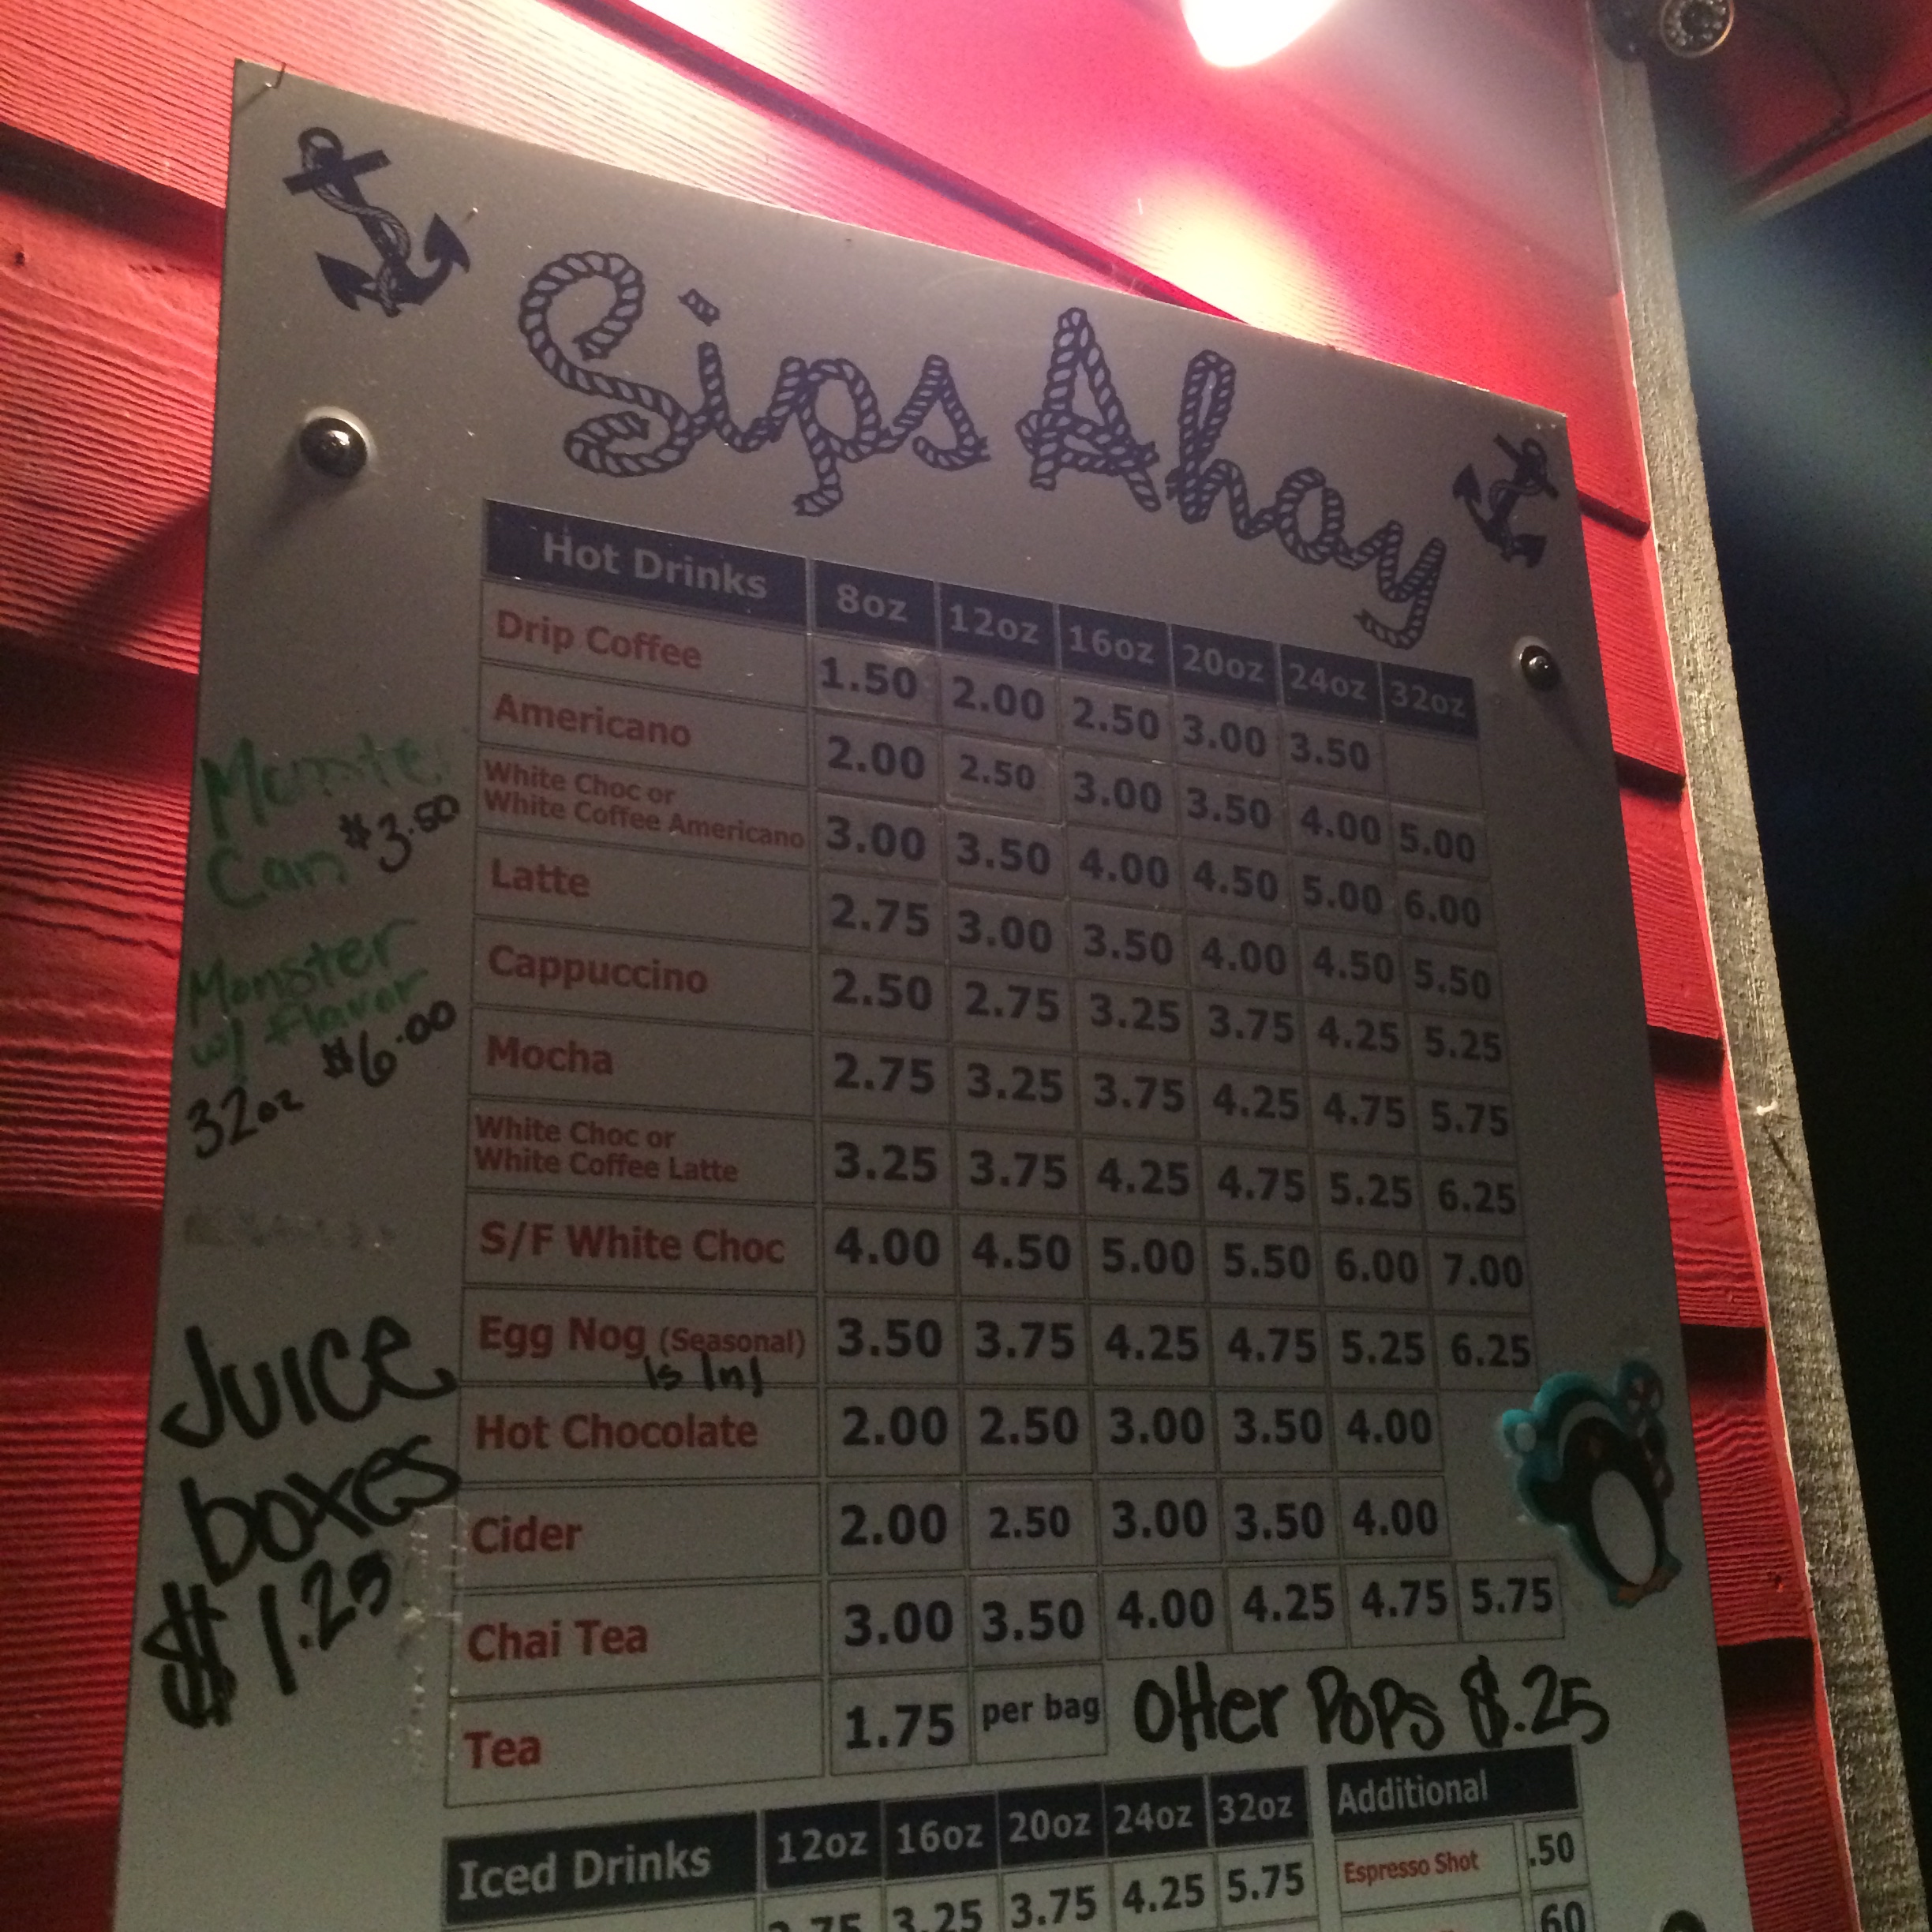 Sips Ahoy
Hot Drinks 8oz 12oz 16oz 20oz 24oz 32oz
Drip Coffee 1.50 2.00 2.50 3.00 3.50
Americano 2.00 2.50 3.00 3.50 4.00 5.00
White Choc or
White Coffee Americano 3.00 3.50 4.00 4.50 5.00 6.00
Latte 2.75 3.00 3.50 4.00 4.50 5.50
Cappuccino 2.50 2.75 3.25 3.75 4.25 5.25
Mocha 2.75 3.25 3.75 4.25 4.75 5.75
White Choc or
White Coffee Latte 3.25 3.75 4.25 4.75 5.25 6.25
S/F White Choc 4.00 4.50 5.00 5.50 6.00 7.00
Egg Nog (Seasonal) 3.50 3.75 4.25 4.75 5.25 6.25
Is In!
Hot Chocolate 2.00 2.50 3.00 3.50 4.00
Cider 2.00 2.50 3.00 3.50 4.00
Chai Tea 3.00 3.50 4.00 4.25 4.75 5.75
Tea 1.75 per bag
Otter Pops $.25
Monster
Can $3.50
Monster
w/ flavor
32oz $6.00
Juice
boxes
$1.25
Iced Drinks 12oz 16oz 20oz 24oz 32oz
3.25 3.75 4.25 5.75
Additional
Espresso Shot .50
.60